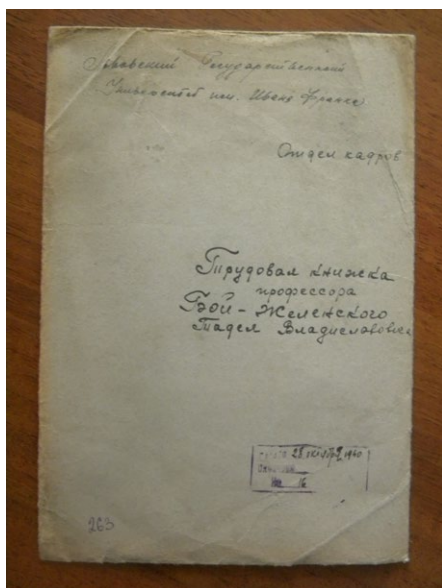 Львовский Государственный
Университет им. Ивана Франка
Отдел кадров
Трудовая книжка
профессора
Бой-Желенского
Тадея Владиславовича
1940
№ 16
263